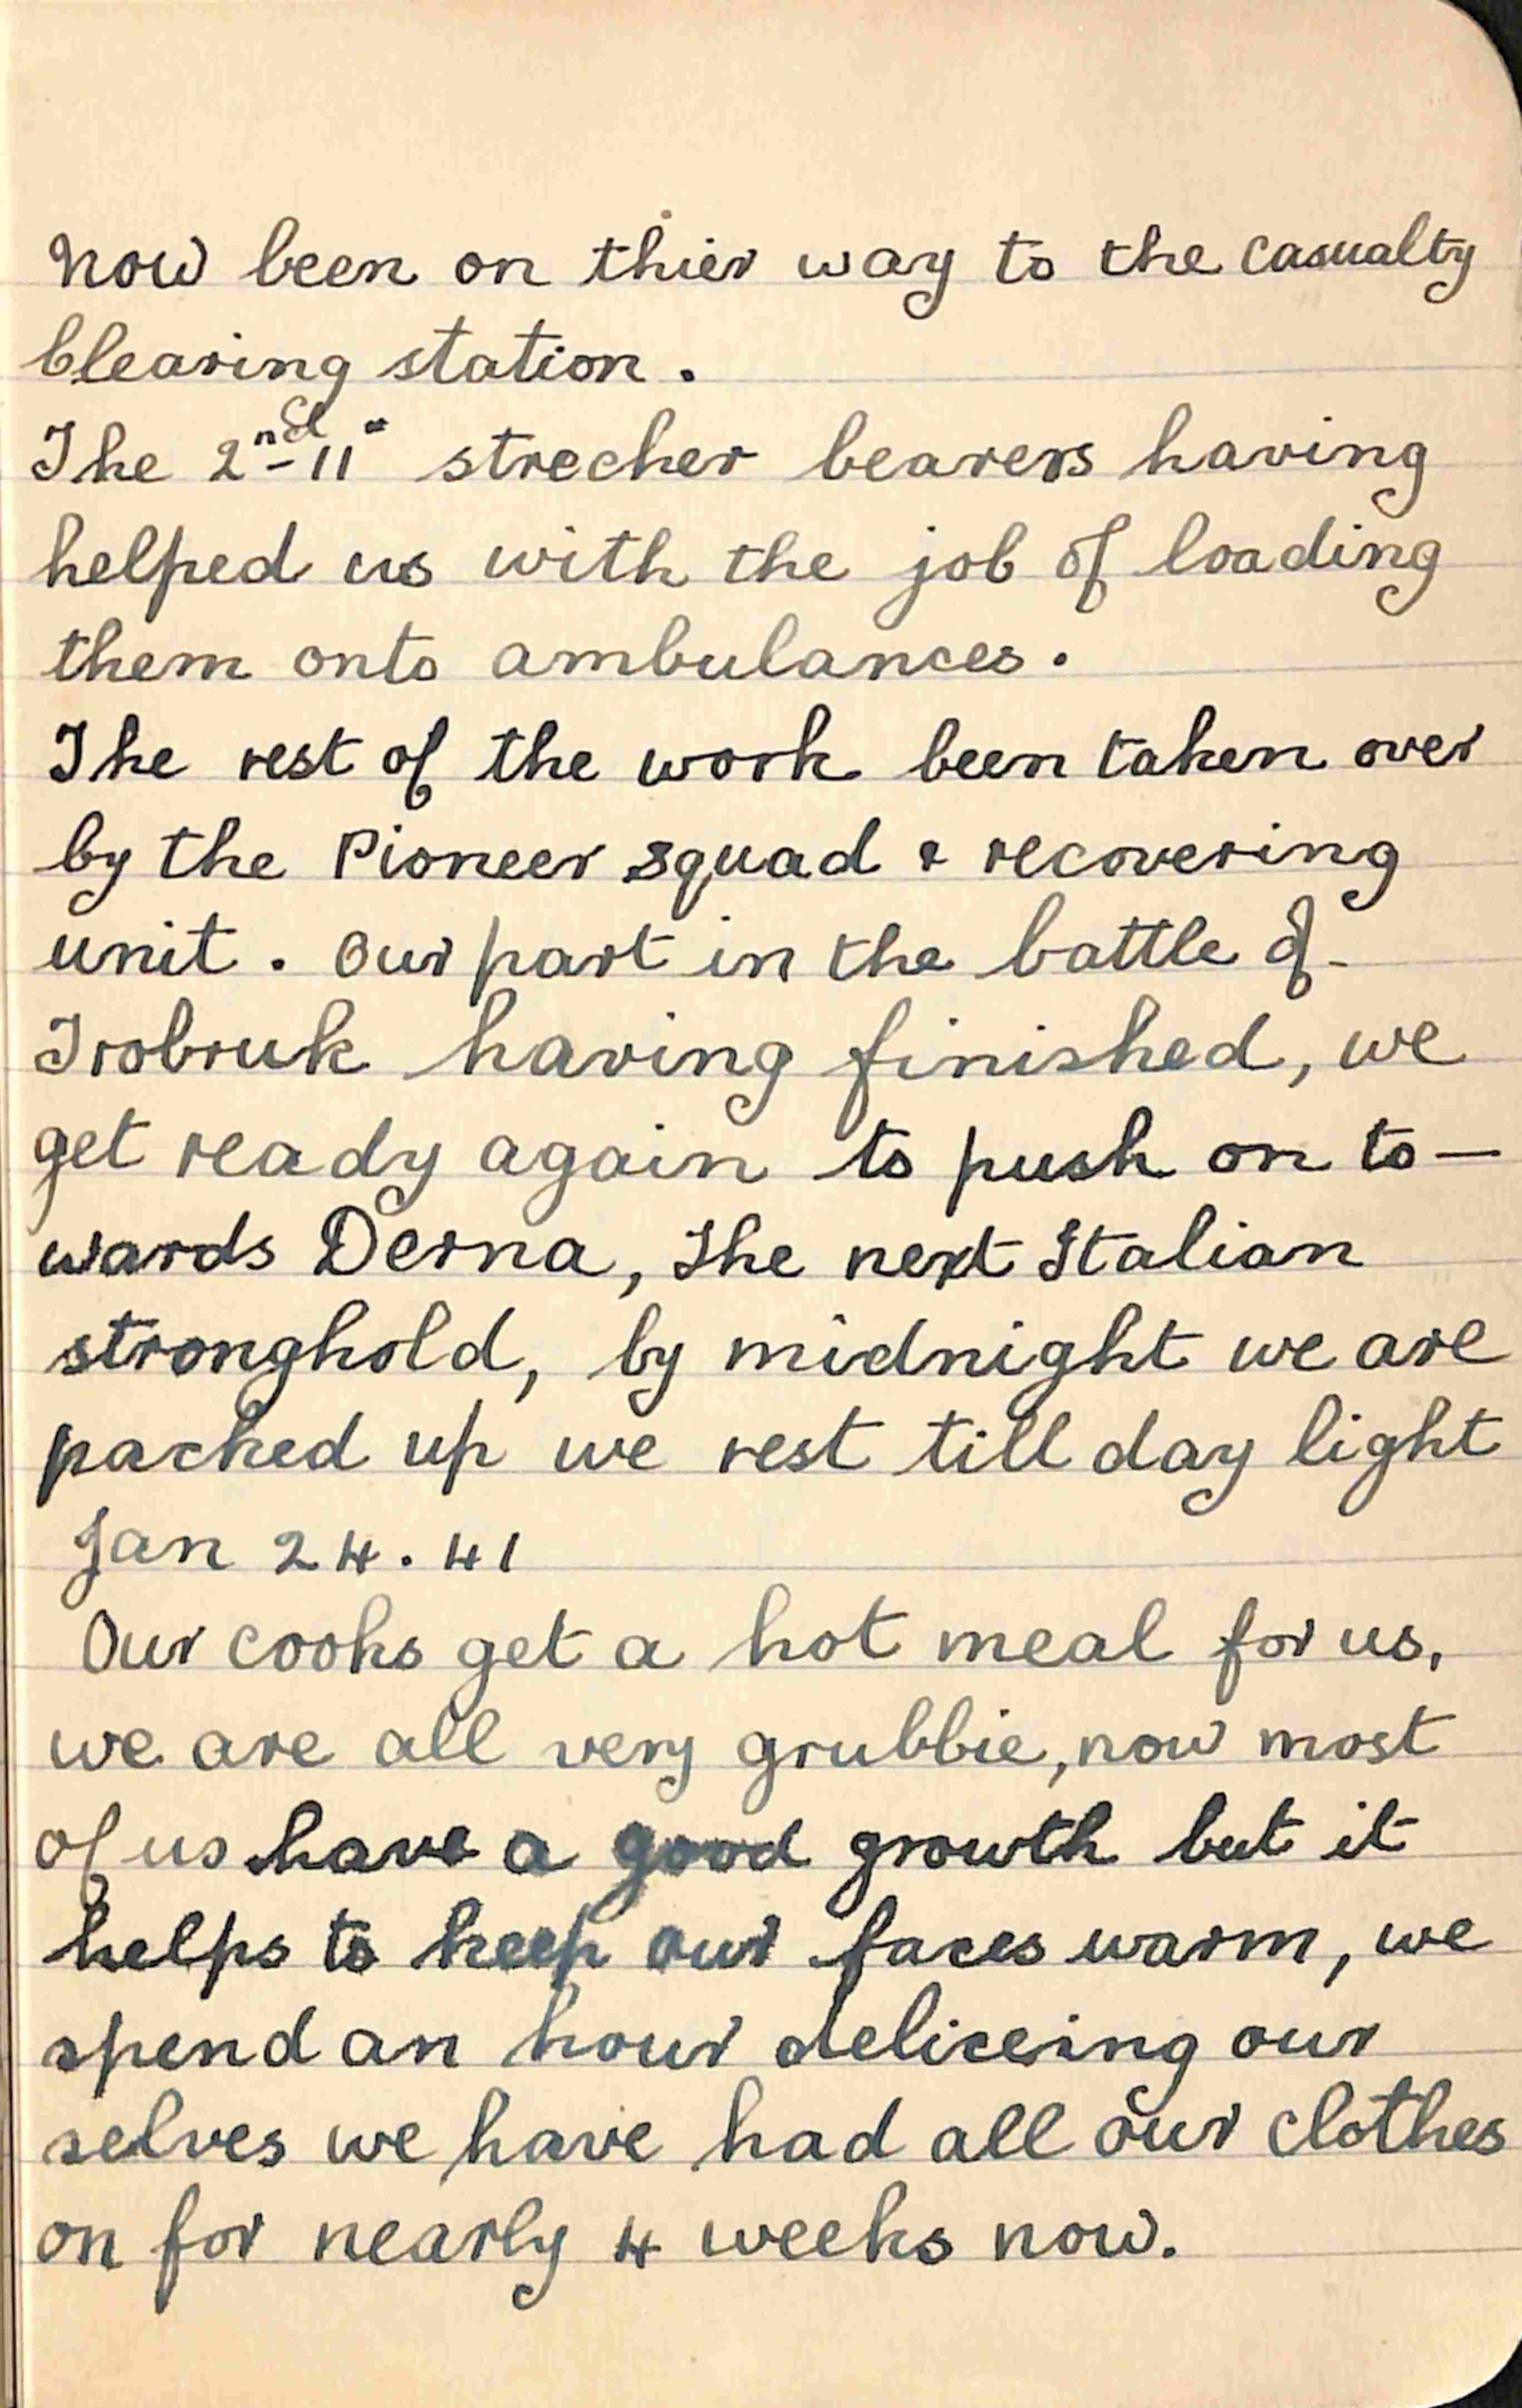 now been on thier way to the casualty
clearing station.
The 2nd-11" strecher bearers having
helped us with the job of loading
them onto ambulances.
The rest of the work been taken over
by the Pioneer squad & recovering
unit. Our part in the battle of
Trobruk having finished, we
get ready again to push on to—
wards Derna, The next Italian
stronghold, by midnight we are
packed up we rest till day light
Jan 24.41
Our cooks get a hot meal for us,
we are all very grubbie, now most
of us have a good growth but it
helps to keep our faces warm, we
spend an hour deliceing our
selves we have had all our clothes
on for nearly 4 weeks now.